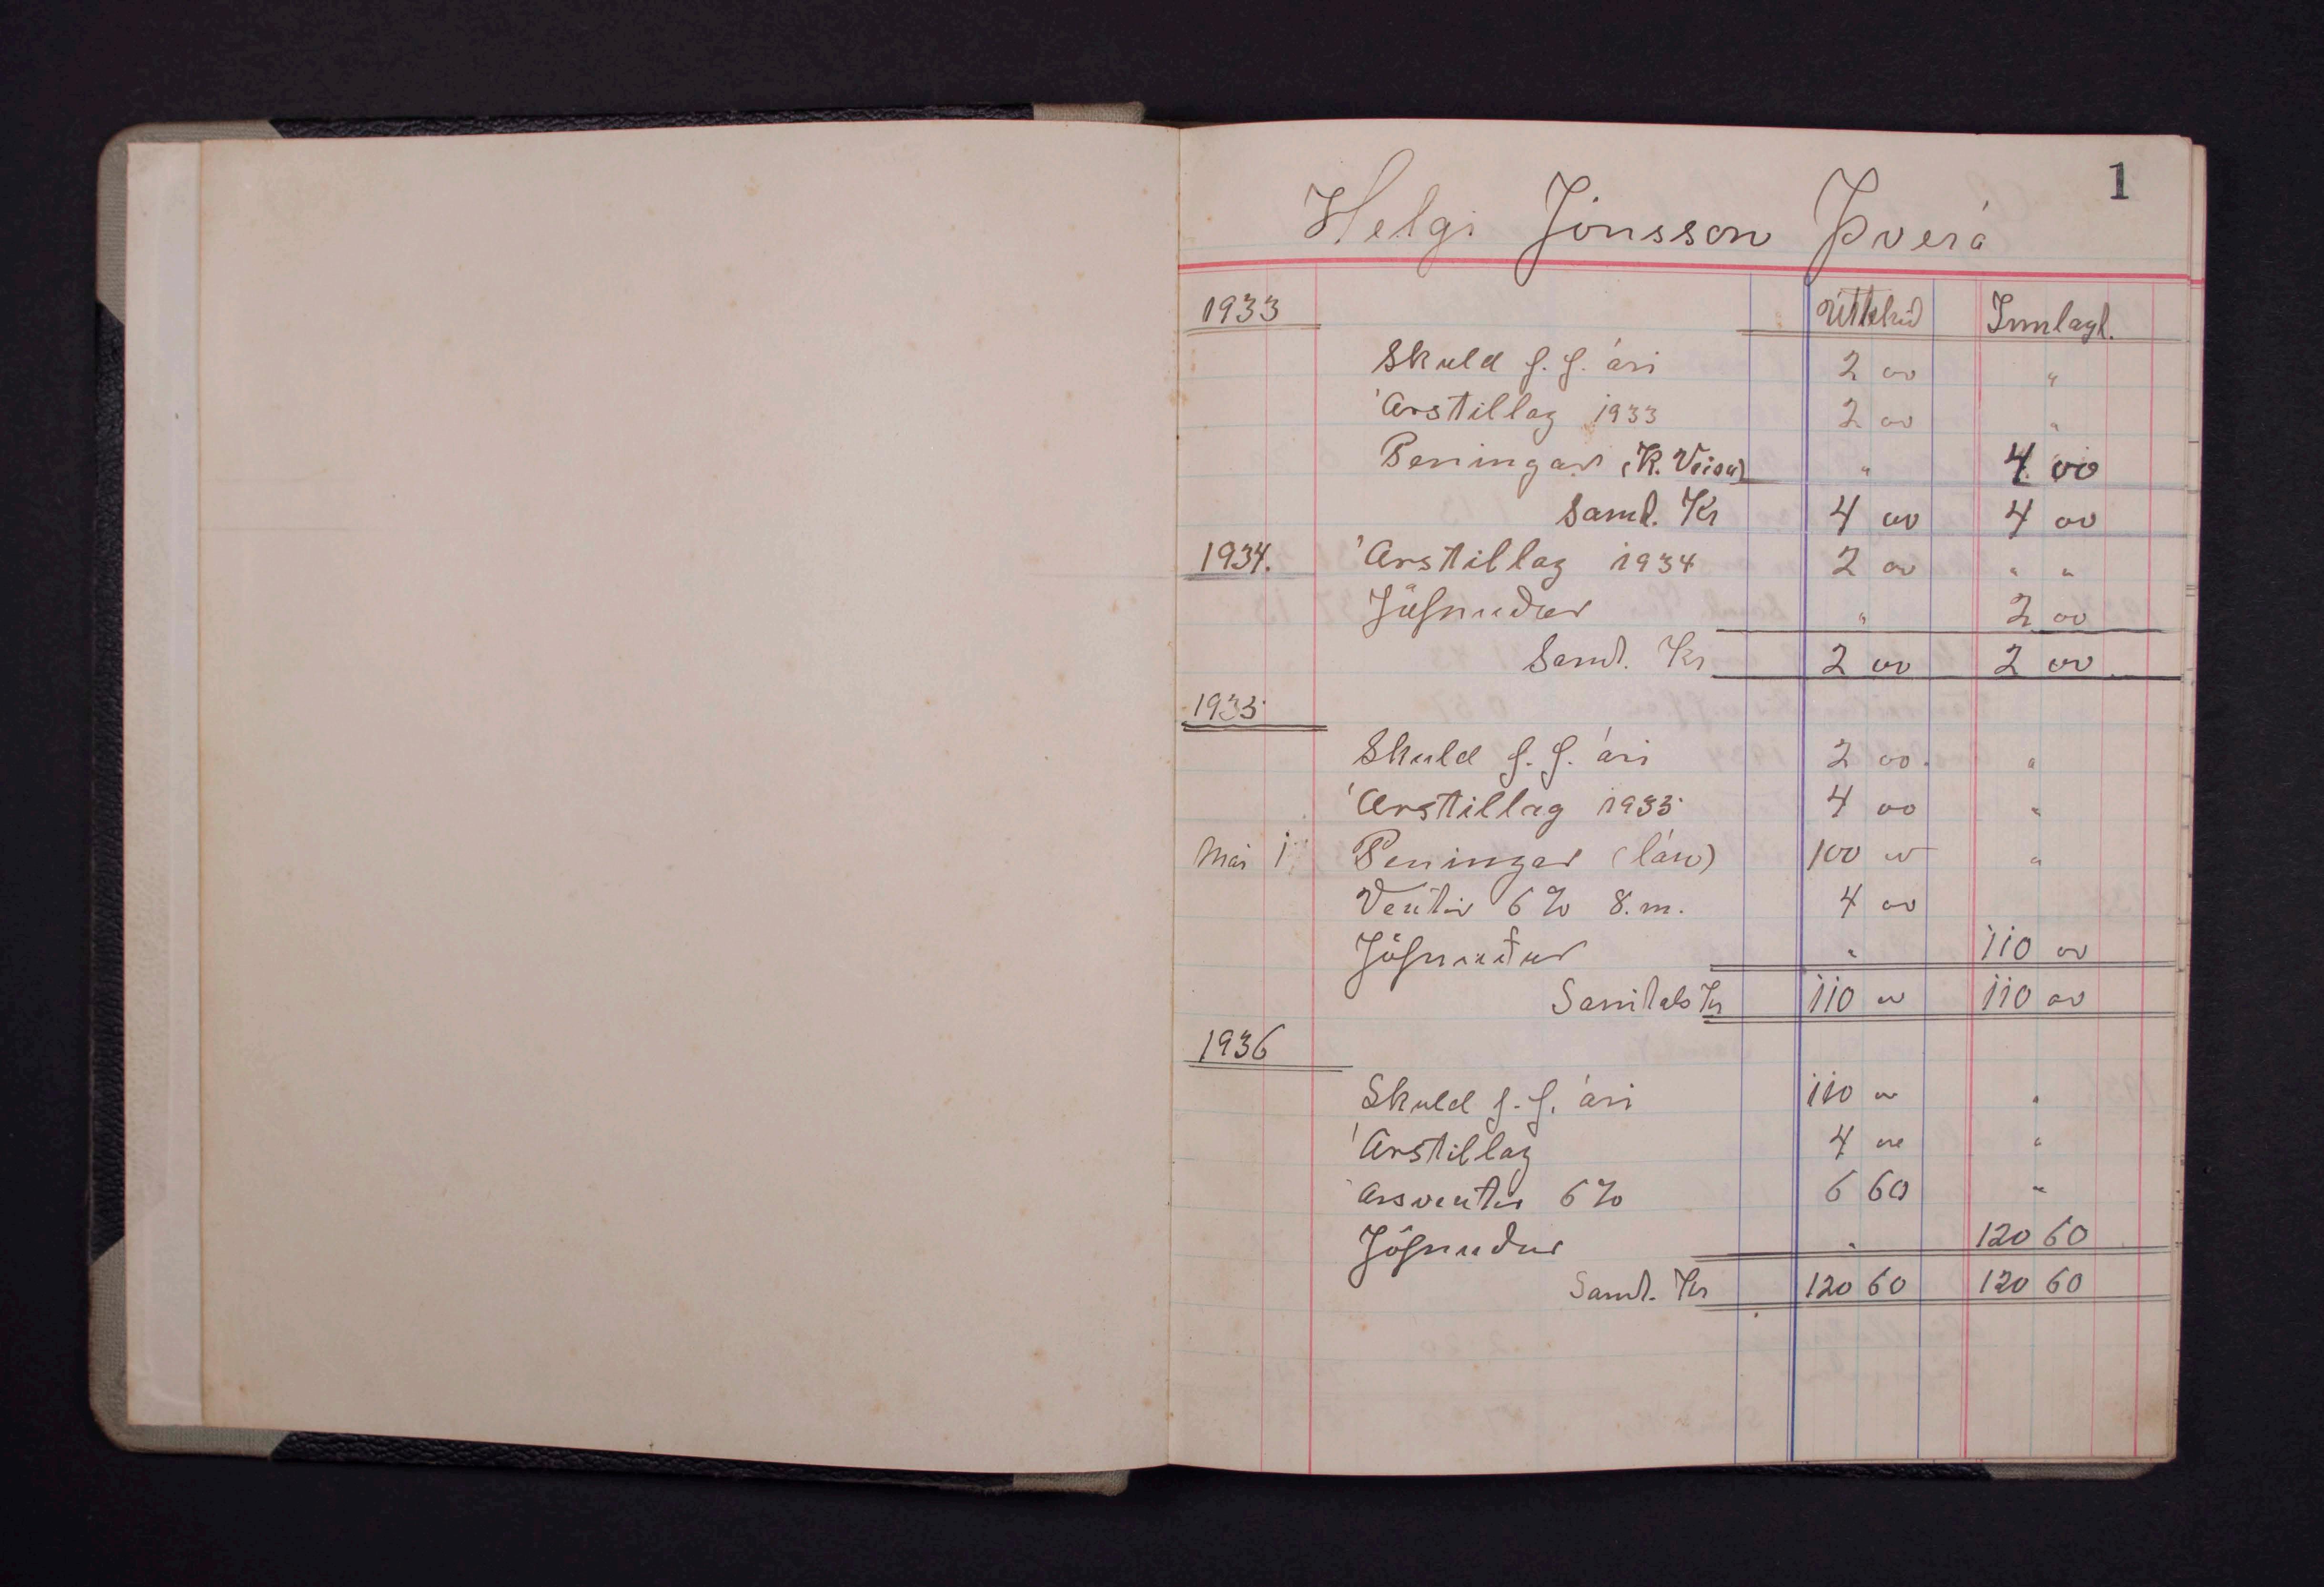 1
Helgi Jónsson Þverá
1933 Úttekið Innlagt.
Skuld f. f. ári 2 00 "
Árstillag 1933 2 00 "
Peningar (K. Veisu) " 4 00
Samt. Kr 4 00 4 00
1934. Árstillag 1934 2 00 " "
Jöfnuður " 2 00
Samt. Kr 2 00 2 00
1935
Skuld f. f. ári 2 00 "
Árstillag 1935 4 00 "
Mai 1. Peningar (lán) 100 00 "
Vextir 6% 8. m. 4 00
Jöfnuður " 110 00
Samtals Kr 110 00 110 00
1936
Skuld f. f. ári 110 00 "
Árstillag 4 00 "
Ársvextir 6% 6 60 "
Jöfnuður " 120 60
Samt. Kr 120 60 120 60